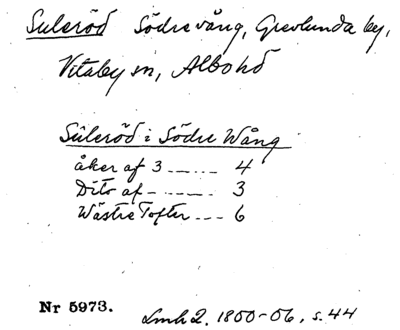 Suleröd Södre vång, Grevlunda by,
Vitaby sn, Albo hd
Suleröd i Södre Wång
åker af 3 ------ 4
Dito af ------- 3
Wästre Tofter --- 6
Nr 5973.
Lmh 2. 1800-06, s. 44